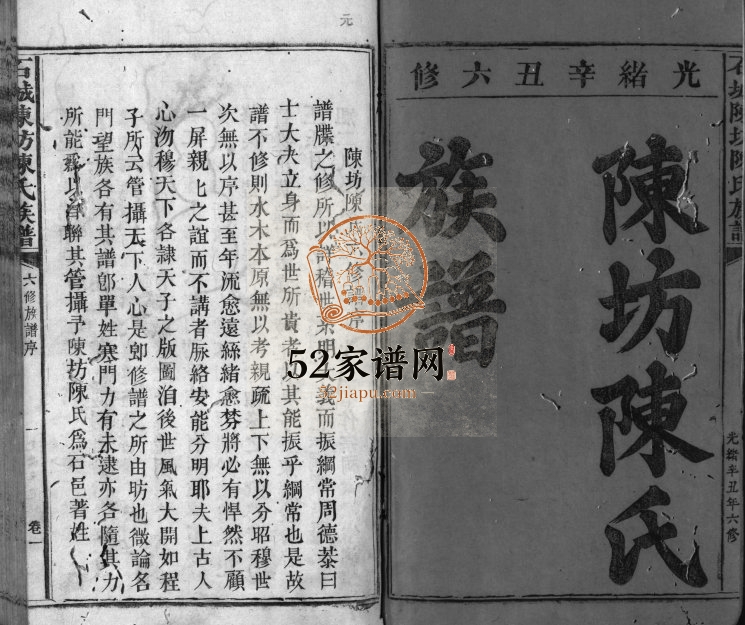 光緒辛丑六修
陳坊陳氏
族譜
石城陳坊陳氏族譜
光緒辛丑年六修
元
陳坊陳 六修 序
譜牒之修所以 稽世系明 而振綱常周德恭曰
士大夫立身而爲世所貴者 其能振乎綱常也是故
譜不修則水木本原無以考親疏上下無以分昭穆世
次無以序甚至年流愈遠絲緒愈棼將必有悍然不顧
一屏親匕之誼而不講者脉絡安能分明耶夫上古人
心沕穆天下各隷天子之版圖洎後世風氣大開如程
子所云管攝天下人心是卽修譜之所由昉也微論名
門望族各有其譜卽單姓寒門力有未逮亦各隨其力
所能爲以 聯其管攝予陳坊陳氏爲石邑著姓
石城陳坊陳氏族譜
六修族譜序
一
卷一
52家谱网
52jiapu.com